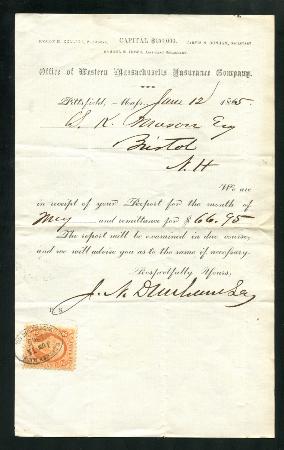 CAPITAL $150,000.
Office of Western Massachusetts Insurance Company.
Pittsfield, Mass. June 12 1865.
S. K. Mason Esq
Bristol
N. H
We are
in receipt of your Report for the month of
May and remittance for $ 66.95
The report will be examined in due course,
and we will advise you as to the same if necessary.
Respectfully Yours,
J. N. Dunham Sec